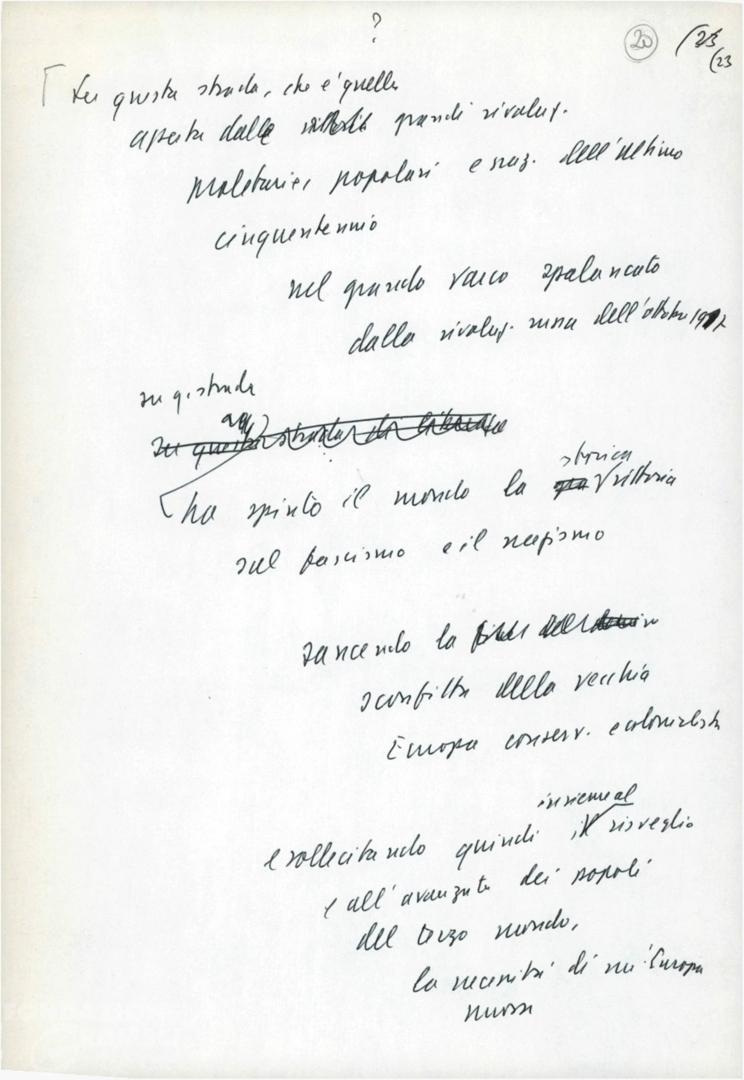 ?
20 (23
(23
Su questa strada, che è quella
aperta dalle grandi rivoluz.
proletarie, popolari e naz. dell'ultimo
cinquantennio
nel grande varco spalancato
dalla rivoluz. russa dell'ottobre 1917
su q. strada
Su questa strada di
storica
ha spinto il mondo la vittoria
sul fascismo e il nazismo
sancendo la
sconfitta della vecchia
Europa conserv. e colonialista
insieme al
e sollecitando quindi il risveglio
e all'avanzata dei popoli
del terzo mondo,
la necessità di un'Europa
nuova